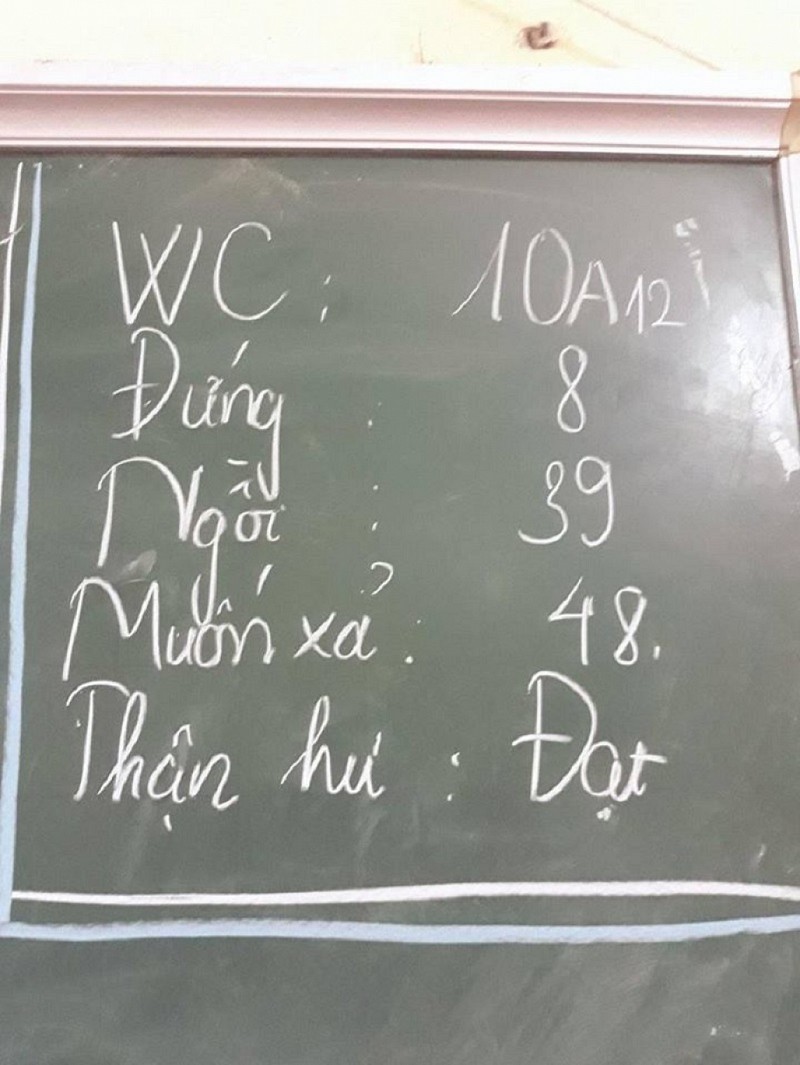 WC : 10A12
Đứng : 8
Ngồi : 39
Muốn xả : 48.
Thận hư : Đạt